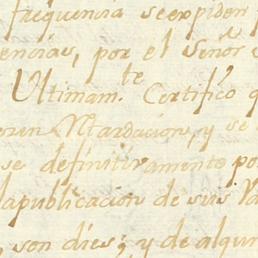 frequencia se expiden
encias, por el señor
Ultimam.te Certifico q
Ntardacion, y se
se definitivamente po
la publicacion de sus Va
, son dies; y de algun